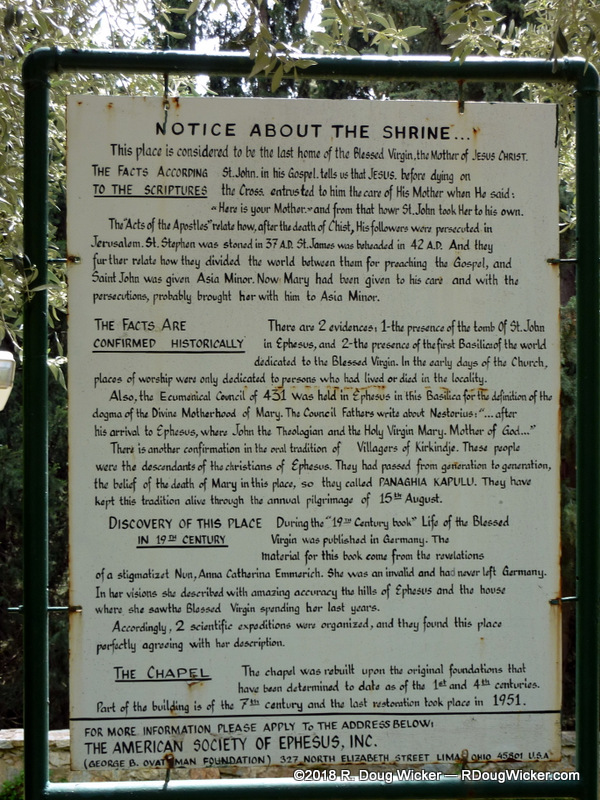 NOTICE ABOUT THE SHRINE...
This place is considered to be the last home of the Blessed Virgin, the Mother of JESUS CHRIST.
THE FACTS ACCORDING St. John. in his Gospel. tells us that JESUS. before dying on
TO THE SCRIPTURES the Cross. entrusted to him the care of His Mother when He said:
"Here is your Mother." and from that howr St. John took Her to his own.
The "Acts of the Apostles" relate how, after the death of Chist, His followers were persecuted in
Jerusalem. St. Stephen was stoned in 37 A.D. St. James was beheaded in 42 A.D. And they
further relate how they divided the world between them for preaching the Gospel, and
Saint John was given Asia Minor. Now Mary had been given to his care and with the
persecutions, probably brought her with him to Asia Minor.
THE FACTS ARE There are 2 evidences: 1-the presence of the tomb Of St. John
CONFIRMED HISTORICALLY in Ephesus, and 2-the presence of the first Basilica of the world
dedicated to the Blessed Virgin. In the early days of the Church,
places of worship were only dedicated to persons who had lived or died in the locality.
Also, the Ecumenical Council of 431 was held in Ephesus in this Basilica for the definition of the
dogma of the Divine Motherhood of Mary. The Council Fathers write about Nestorius: "... after
his arrival to Ephesus, where John the Theologian and the Holy Virgin Mary. Mother of God..."
There is another confirmation in the oral tradition of Villagers of Kirkindje. These people
were the descendants of the christians of Ephesus. They had passed from generation to generation,
the belief of the death of Mary in this place, so they called PANAGHIA KAPULU. They have
kept this tradition alive through the annual pilgrimage of 15th August.
DISCOVERY OF THIS PLACE During the "19TH Century book" Life of the Blessed
IN 19TH CENTURY Virgin was published in Germany. The
material for this book come from the revelations
of a stigmatizet Nun, Anna Catherina Emmerich. She was an invalid and had never left Germany.
In her visions she described with amazing accuracy the hills of Ephesus and the house
where she saw the Blessed Virgin spending her last years.
Accordingly, 2 scientific expeditions were organized, and they found this place
perfectly agreeing with her description.
THE CHAPEL The chapel was rebuilt upon the original foundations that
have been determined to date as of the 1st and 4th centuries.
Part of the building is of the 7th century and the last restoration took place in 1951.
FOR MORE INFORMATION PLEASE APPLY TO THE ADDRESS BELOW:
THE AMERICAN SOCIETY OF EPHESUS, INC.
(GEORGE B. FOUNDATION) 327 NORTH ELIZABETH STREET LIMA OHIO 45801 U.S.A
©2018 R. Doug Wicker — RDougWicker.com